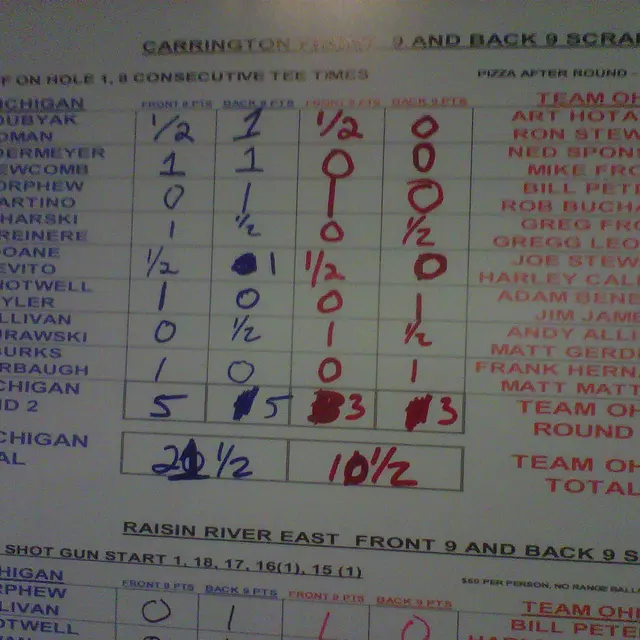 CARRINGTON 9 AND BACK 9 SCRA
F ON HOLE 1, 8 CONSECUTIVE TEE TIMES PIZZA AFTER ROUND -
ICHIGAN FRONT 9 PTS BACK 9 PTS FRONT 9 PTS BACK 9 PTS TEAM OH
OUBYAK 1/2 1 1/2 0 ART HOTA
OMAN RON STEW
DERMEYER 1 1 0 0 NED SPON
EWCOMB MIKE FRO
ORPHEW 0 1 1 0 BILL PETE
ARTINO ROB BUCHA
HARSKI 1 1/2 0 1/2 GREG FRO
REINERE GREGG LEO
OANE 1/2 1 1/2 0 JOE STEW
EVITO HARLEY CALL
HOTWELL 1 0 0 1 ADAM BENE
TYLER JIM JAME
LLIVAN 0 1/2 1 1/2 ANDY ALLI
URAWSKI MATT GERD
BURKS 1 0 0 1 FRANK HERN
RBAUGH MATT MATT
CHIGAN 5 5 3 3 TEAM OH
ND 2 ROUND
CHIGAN 21 1/2 10 1/2 TEAM OH
AL TOTAL
RAISIN RIVER EAST FRONT 9 AND BACK 9 S
SHOT GUN START 1, 18, 17, 16(1), 15 (1) $60 PER PERSON, NO RANGE BALL
HIGAN FRONT 9 PTS BACK 9 PTS FRONT 9 PTS BACK 9 PTS TEAM OH
RPHEW 0 1 1 0 BILL PETE
LIVAN
OTWELL